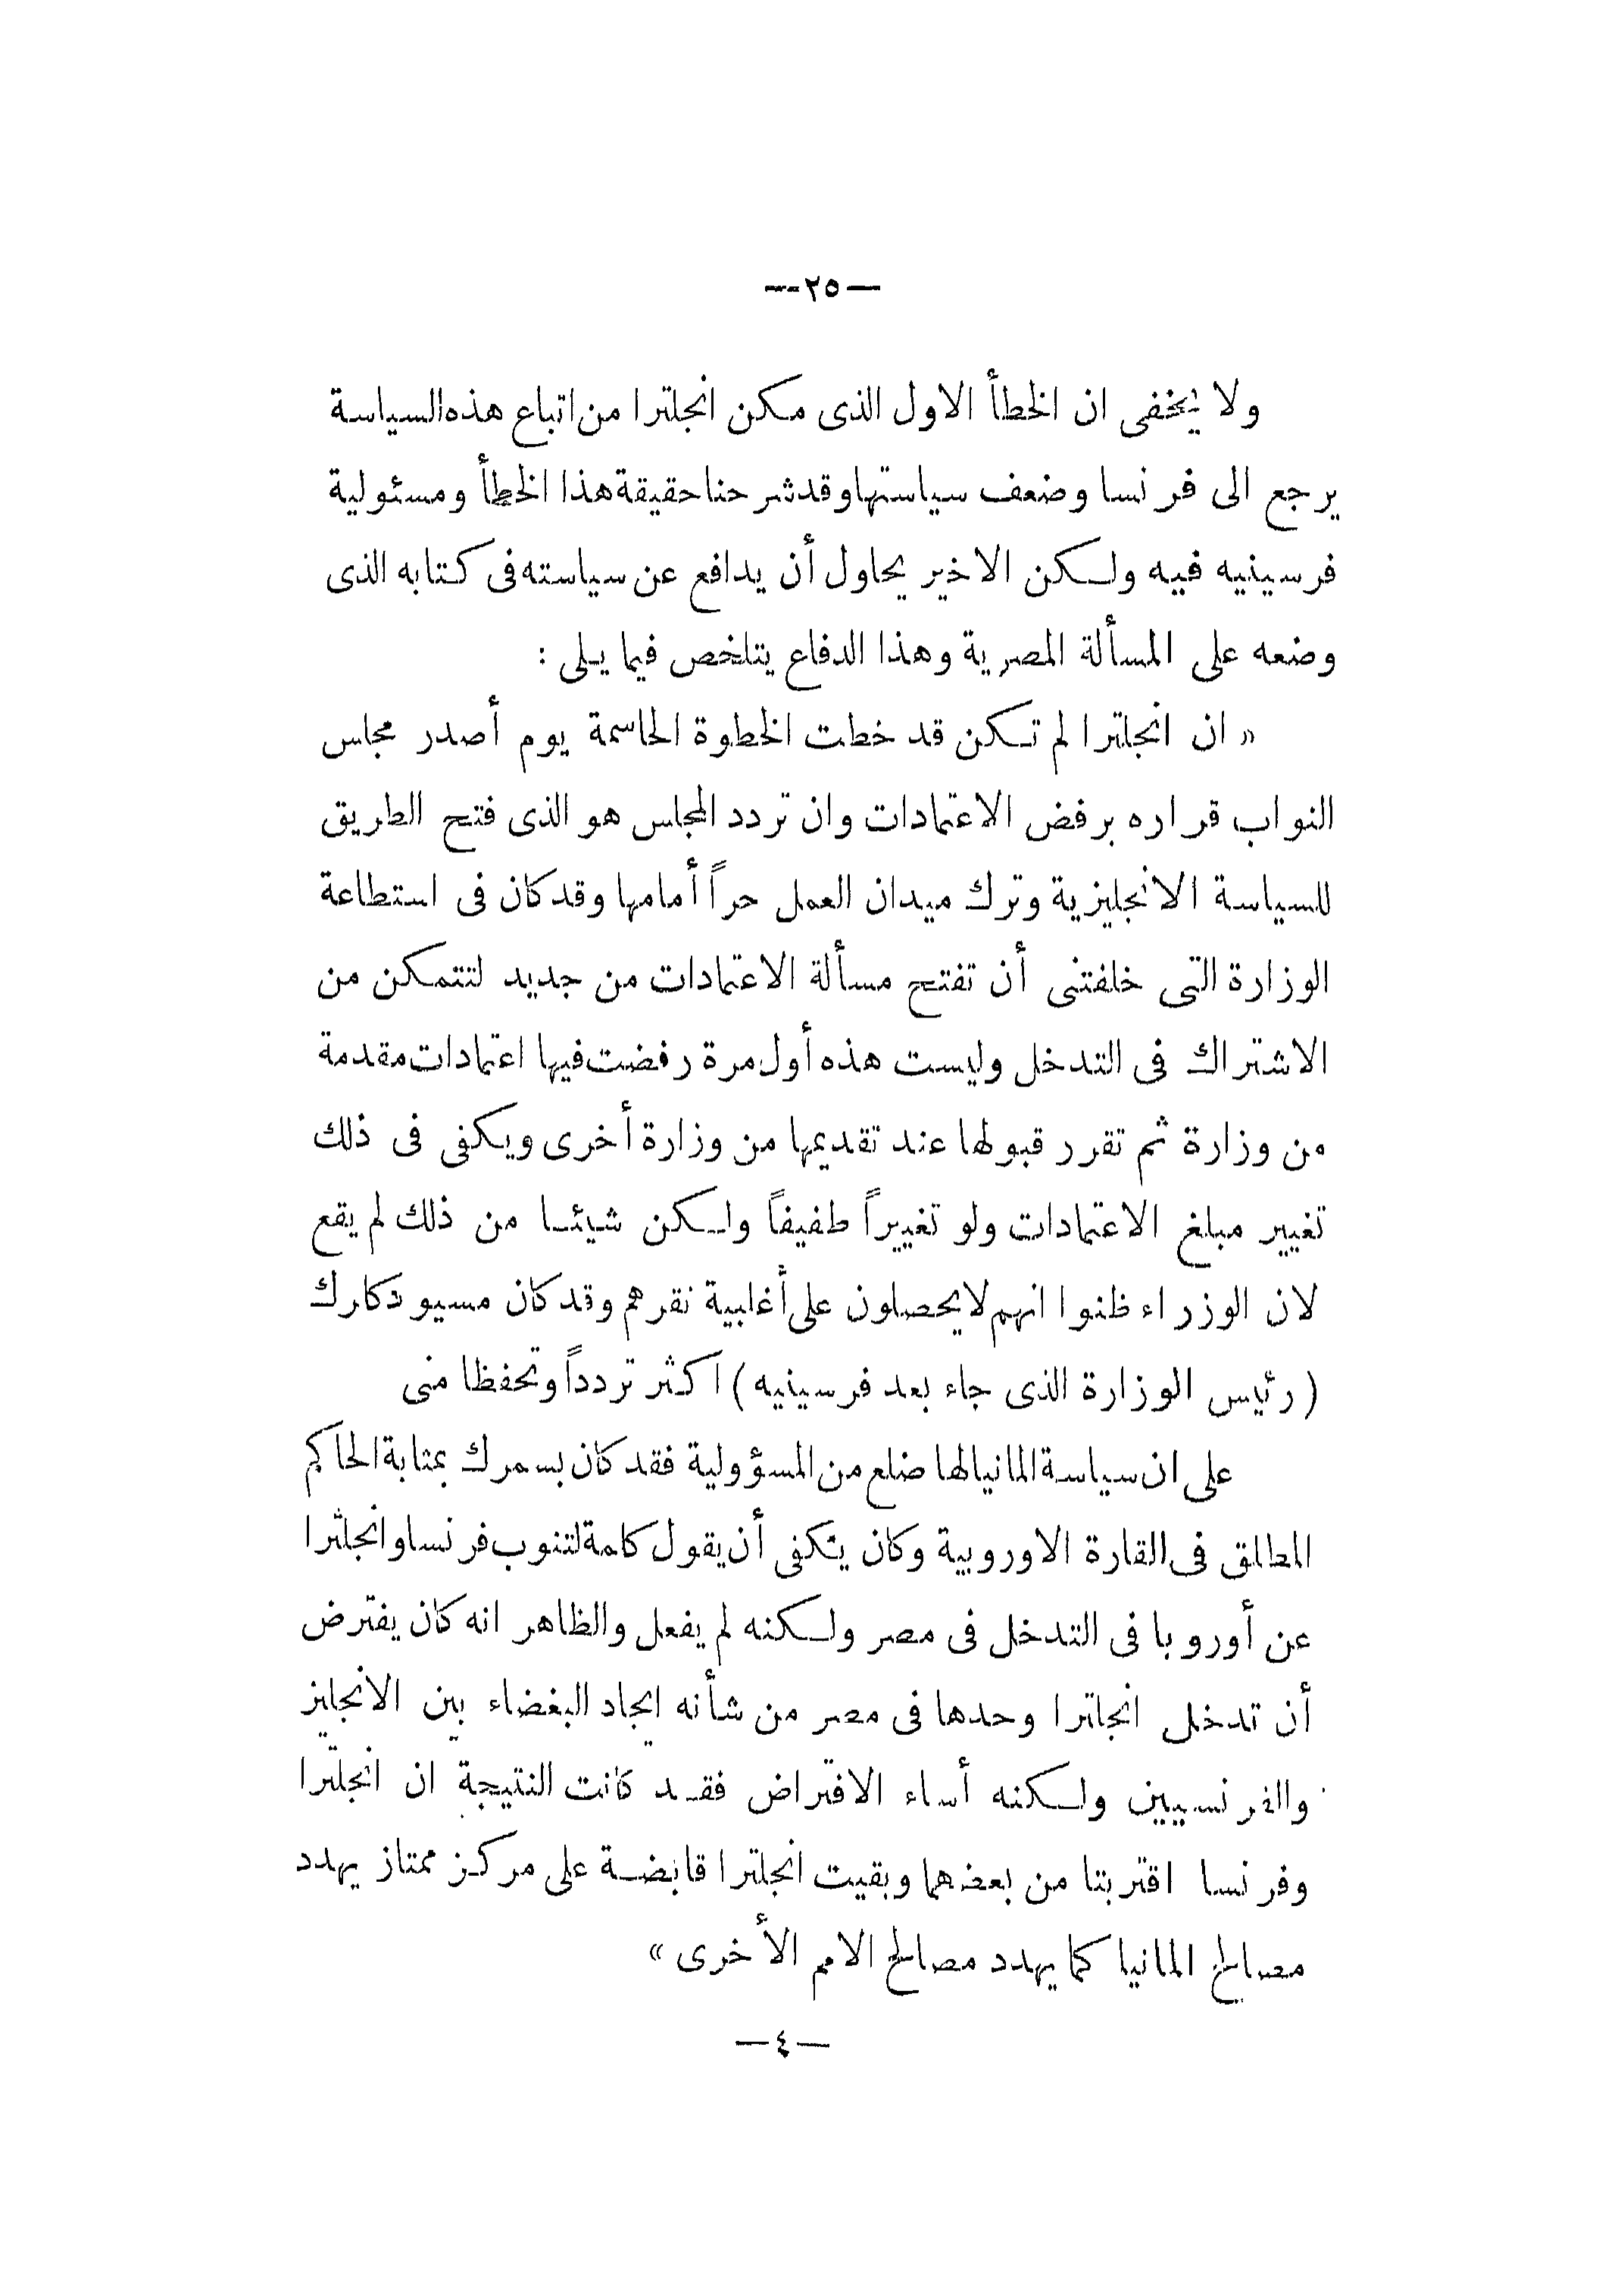 —٢٥—
ولا يخفى ان الخطأ الاول الذى مكن انجلترا من اتباع هذه السياسة
يرجع الى فرنسا وضعف سياستها وقد شرحنا حقيقة هذا الخطأ ومسئولية
فرسينيه فيه ولكن الاخير يحاول أن يدافع عن سياسته فى كتابه الذى
وضعه على المسألة المصرية وهذا الدفاع يتلخص فيما يلى :
« ان انجلترا لم تكن قد خطت الخطوة الحاسمة يوم أصدر مجلس
النواب قراره برفض الاعتمادات وان تردد المجلس هو الذى فتح الطريق
للسياسة الانجليزية وترك ميدان العمل حراً أمامها وقد كان فى استطاعة
الوزارة التى خلفتنى أن تفتح مسألة الاعتمادات من جديد لتتمكن من
الاشتراك فى التدخل وليست هذه أول مرة رفضت فيها اعتمادات مقدمة
من وزارة ثم تقرر قبولها عند تقديمها من وزارة أخرى ويكفى فى ذلك
تغيير مبلغ الاعتمادات ولو تغييراً طفيفاً ولكن شيئا من ذلك لم يقع
لان الوزراء ظنوا انهم لا يحصلون على أغلبية تقرهم وقد كان مسيو دكلرك
( رئيس الوزارة الذى جاء بعد فرسينيه ) اكثر تردداً وتحفظا منى
على ان سياسة المانيا لها ضلع من المسؤولية فقد كان بسمرك بمثابة الحاكم
المطلق فى القارة الاوروبية وكان يكفى أن يقول كلمة لتنوب فرنسا وانجلترا
عن أوروبا فى التدخل فى مصر ولكنه لم يفعل والظاهر انه كان يفترض
أن تدخل انجلترا وحدها فى مصر من شأنه ايجاد البغضاء بين الانجليز
والفرنسيين ولكنه أساء الافتراض فقد كانت النتيجة ان انجلترا
وفرنسا اقتربتا من بعضهما وبقيت انجلترا قابضة على مركز ممتاز يهدد
مصالح المانيا كما يهدد مصالح الامم الأخرى »
—٤—